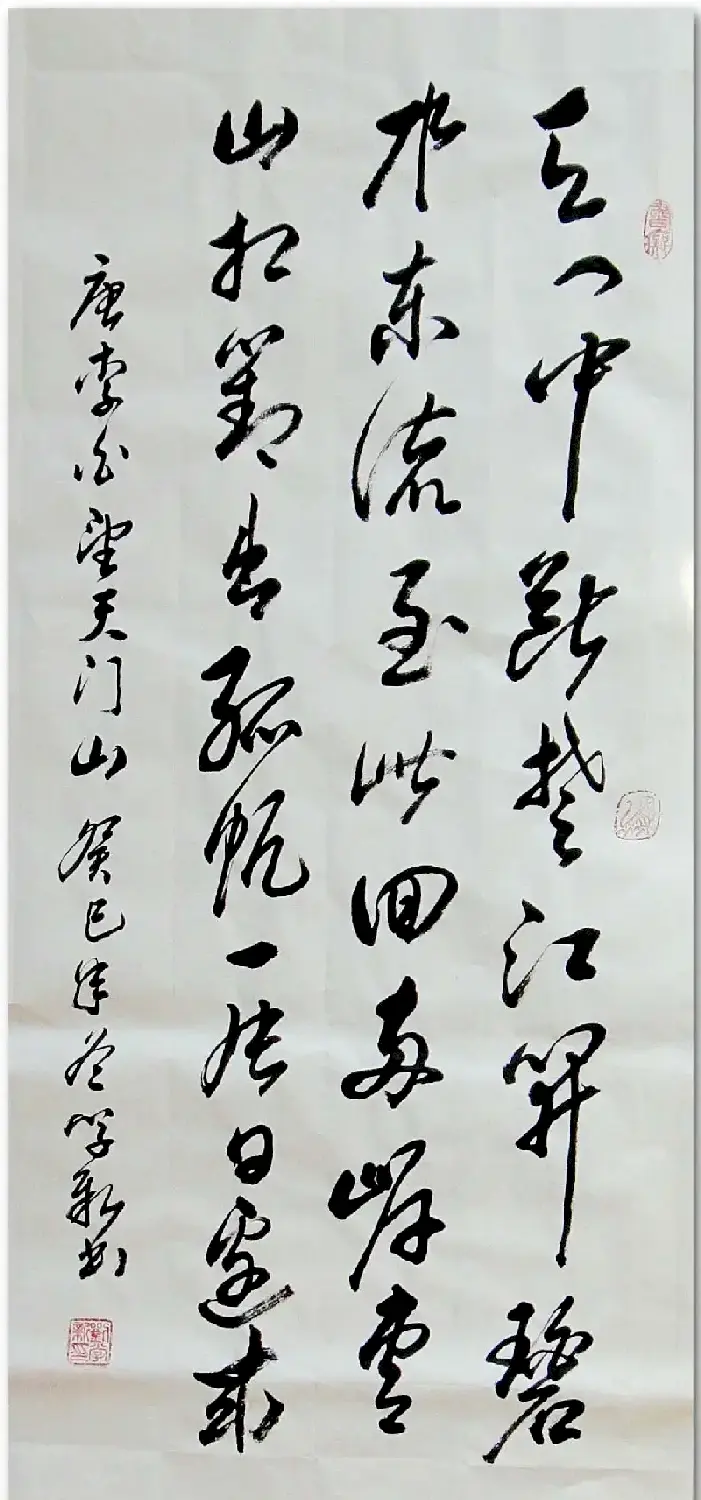 天门中断楚江開碧
水東流至此回两岸青
山相對出孤帆一片日邊来
唐李白望天门山 癸巳年冬学新书